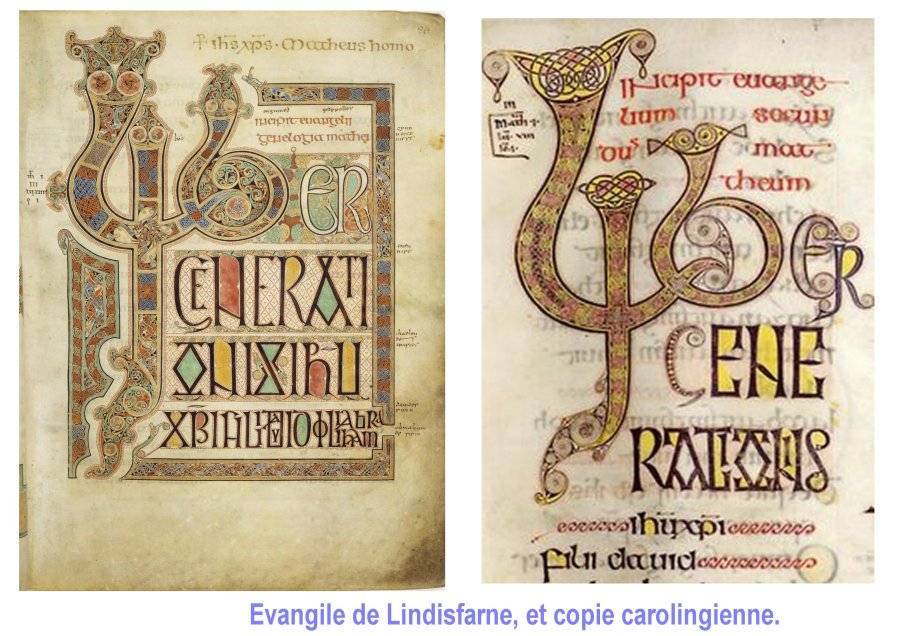 ihs xps · Matheus homo
incipit euangelii
genelogia mathei
LIBER
GENERATI
ONIS IHU
XPI FILII DAVID FILII ABRAHAM
Incipit euange
lium secun
dus mat
theum
LIBER
GENE
RATIONIS
ihu xpi
filii dauid
Evangile de Lindisfarne, et copie carolingienne.